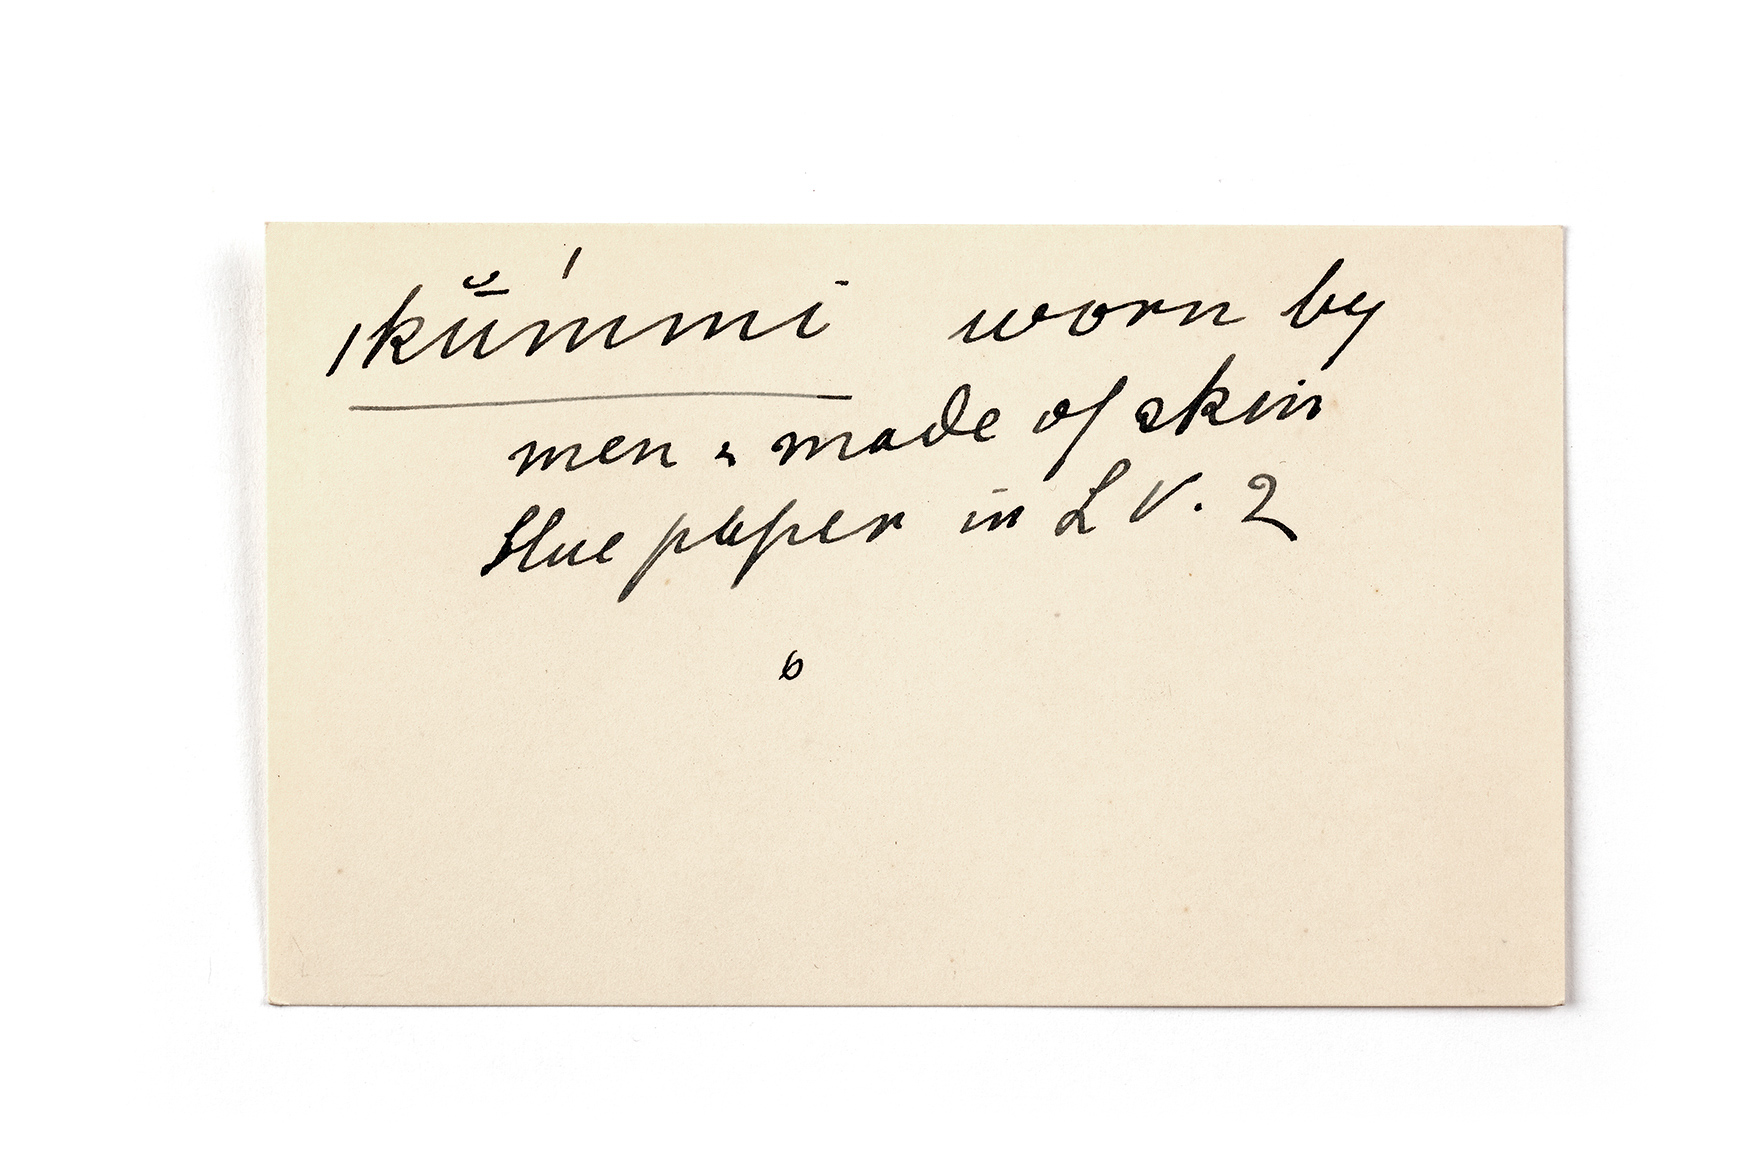 ikū̆'mmi worn by
men & made of skin
blue paper in L V. 2
6